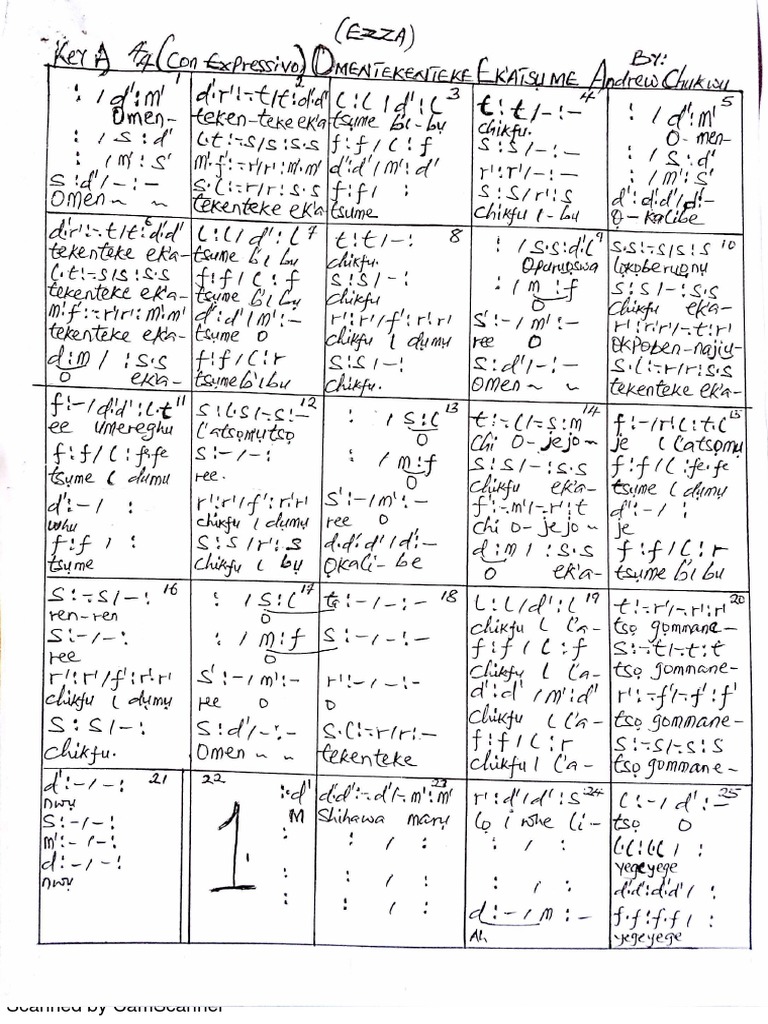 (EZZA)
Key A 4/4 (Con Expressivo) OMENTEKENTEKE EKATSUME BY: Andrew Chukwu
1
: / d':m'
Omen-
: / s : d'
: / m : s'
s : d' / - : -
Omen ~ ~
2
d'.r' : -.t / t : d'.d'
teken-teke eka-
l.t : -.s / s : s.s
m'.f' : -.r' / r' : m'.m'
s.l : -.r / r : s.s
tekenteke eka-
3
l : l / d' : l
tsume bi-bu
f : f / l : f
d' : d' / m' : d'
f : f / :
tsume
4
t : t / - : -
chikfu.
s : s / - : -
r' : r' / - : -
s : s / r' : s
chikfu l-bu
5
: / d' : m'
O-men-
: / s : d'
: / m : s'
d' : d'.d' / d' : -
O-kalibe
6
d'.r' : -.t / t : d'.d'
tekenteke eka-
l.t : -.s / s : s.s
tekenteke eka-
m'.f' : -.r' / r' : m'.m'
tekenteke eka-
d : m / : s.s
O eka-
7
l : l / d' : l
tsume bi bu
f : f / l : f
tsume bi bu
d' : d' / m' : -
tsume O
f : f / l : r
tsume bi bu
8
t : t / - :
chikfu.
s : s / - :
chikfu
r' : r' / f' : r'.r'
chikfu l dumu
s : s / - :
chikfu.
9
: / s.s : d'.l
Oparuoswa
: / m : f
O
s' : - / m' : -
ree O
s : d' / - : -
Omen ~ ~
10
s.s : -.s / s : s
lokoberuonu
s : s / - : s.s
chikfu eka-
r' : r'.r' / -.t : r'
okpoben-najiu-
s.l : -.r / r : s.s
tekenteke eka-
11
f : - / d'.d' : l.t
ee umereghu
f : f / l : fe.fe
tsume l dumu
d' : - / :
whu
f : f / :
tsume
12
s : l.s / -.s : -
l'atsomutso
s : - / - :
ree.
r' : r' / f' : r'.r'
chikfu l dumu
s : s / r' : s
chikfu l bu
13
: / s : l
O
: / m : f
O
s' : - / m' : -
ree O
d'.d' : d' / d' : -
Okali-be
14
t : -.l / - .s : m
chi O-jejo~
s : s / - : s.s
chikfu eka-
f' : -.m' / -.r' : t
chi O-jejo~
d : m / : s.s
O eka-
15
f : - / r'.l : t.l
je l l'atsomu
f : f / l : fe.fe
tsume l dumu
d' : - / :
je
f : f / l : r
tsume bi bu
16
s : -.s / - :
ren-ren
s : - / - :
ree
r' : r' / f' : r'.r'
chikfu l dumu
s : s / - :
chikfu.
17
: / s : l
O
: / m : f
O
s' : - / m' : -
ree O
s : d' / - : -
Omen ~ ~
18
t : - / - : -
s : - / - : -
r' : - / - : -
O
s.l : -.r / r : -
tekenteke
19
l : l / d' : l
chikfu l l'a-
f : f / l : f
chikfu l l'a-
d' : d' / m' : d'
chikfu l l'a-
f : f / l : r
chikfu l l'a-
20
t : -.r' / -.r' : r'
tso gommane-
s : -.t / -.t : t
tso gommane-
r' : -.f' / -.f' : f'
tso gommane-
s : -.s / -.s : s
tso gommane-
21
d' : - / - :
nwu
s : - / - :
m' : - / - :
d : - / - :
nwu
22
: d'
M
1
:
:
:
23
d'.d' : -.d' / -.m' : m'
Shihawa maru
: / :
: / :
: / :
24
r' : d' / d' : s
lo i whe li-
: / :
: / :
d : - / m : -
Ah
25
l : - / d' : -
tso O
l.l : l.l / :
yegeyege
d'.d' : d'.d' / :
f.f : f.f / :
yegeyege
Scanned by CamScanner